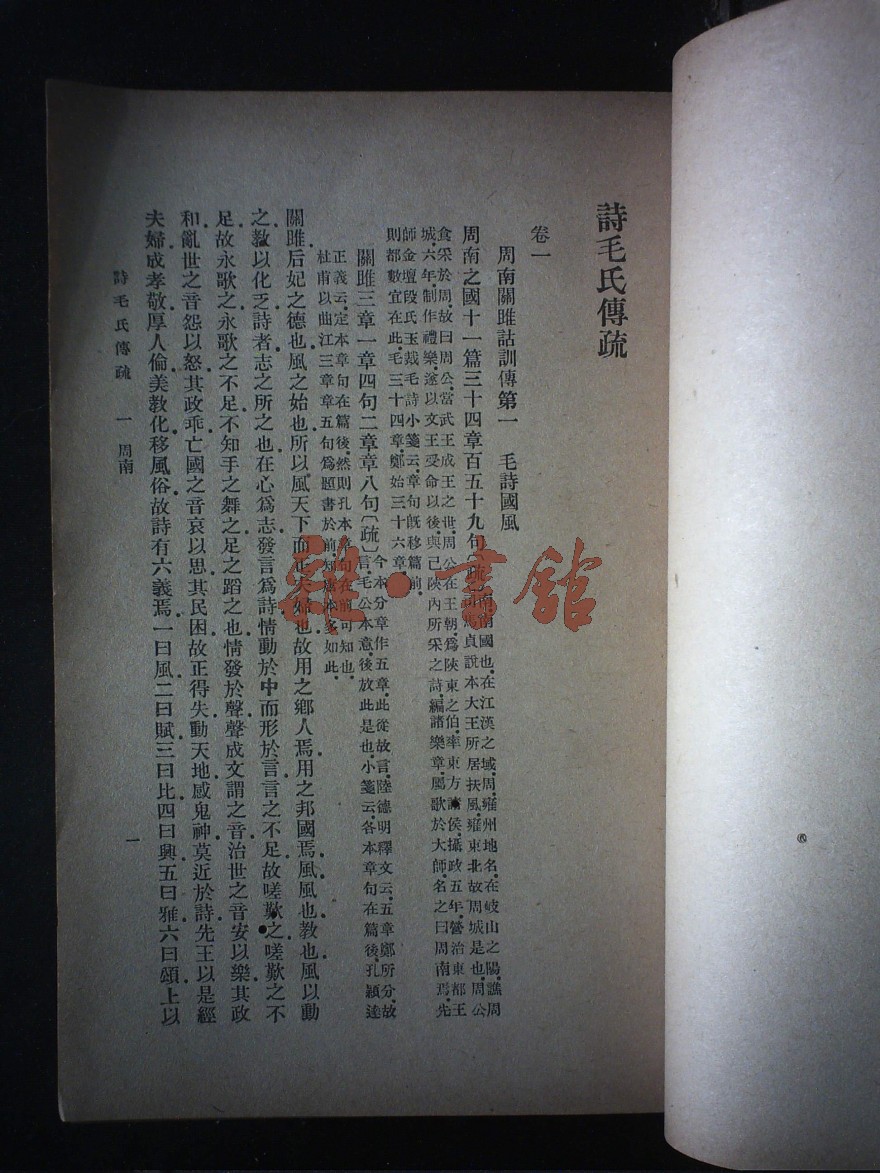 詩毛氏傳疏
卷一
周南關雎詁訓傳第一 毛詩國風
周南之國十一篇三十四章百五十九句〔疏〕南南國也.在江漢之域.周.雍州地名.在岐山之陽.譙周
司馬貞說本大王所居扶風.雍東北故周城是也.周公
食采於周.故曰周公.當武王成王之世.周公在王朝.爲陝東之伯.率東方諸侯.攝政五年.營治東都王
城.六年.制作禮樂.遂以文王受命以後.與己陝內所采之詩.編諸樂章.屬歌於大師.名之曰周南焉.先
師金壇段氏玉裁毛詩小箋云.章句旣移篇前.
則都數宜在此.毛三十四章.鄭始三十六章.
關雎三章一章四句二章章八句〔疏〕今本分章作五章.此從故言.陸德明釋文云.五章鄭所分.故
言.毛公本意.後放此是也.小箋云.各本章句在篇後.孔穎達
正義云.定本章句在篇後.然則孔本章句在前可知也.
杜甫以曲江三章章五句爲題書於前.知唐本多如此.
關雎.后妃之德也.風之始也.所以風天下而正夫婦也.故用之鄉人焉.用之邦國焉.風風也.教也.風以動
之.教以化之.詩者.志之所之也.在心爲志.發言爲詩.情動於中而形於言.言之不足.故嗟歎之.嗟歎之不
足.故永歌之.永歌之不足.不知手之舞之足之蹈之也.情發於聲.聲成文謂之音.治世之音安以樂.其政
和.亂世之音怨以怒.其政乖.亡國之音哀以思.其民困.故正得失.動天地.感鬼神.莫近於詩.先王以是經
夫婦.成孝敬.厚人倫.美教化.移風俗.故詩有六義焉.一曰風.二曰賦.三曰比.四曰興.五曰雅.六曰頌.上以
詩毛氏傳疏 一 周南
一
書館